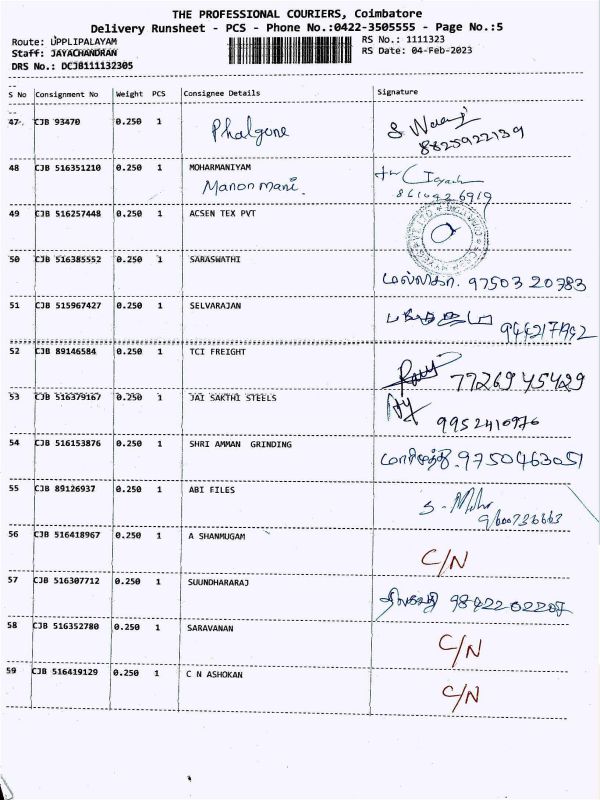 THE PROFESSIONAL COURIERS, Coimbatore
Delivery Runsheet - PCS - Phone No.:0422-3505555 - Page No.:5
Route: UPPLIPALAYAM RS No.: 1111323
Staff: JAYACHANDRAN RS Date: 04-Feb-2023
DRS No.: DCJB111132305
S No Consignment No Weight PCS Consignee Details Signature
47 CJB 93470 0.250 1 Phalgune S
8825922139
48 CJB 516351210 0.250 1 MOHARMANIYAM
Manonmani.
49 CJB 516257448 0.250 1 ACSEN TEX PVT
50 CJB 516385552 0.250 1 SARASWATHI
மல்லிகா. 97503 20783
51 CJB 515967427 0.250 1 SELVARAJAN
52 CJB 89146584 0.250 1 TCI FREIGHT
77269 45429
53 CJB 516379167 0.250 1 JAI SAKTHI STEELS
9952410976
54 CJB 516153876 0.250 1 SHRI AMMAN GRINDING
9750463051
55 CJB 89126937 0.250 1 ABI FILES
56 CJB 516418967 0.250 1 A SHANMUGAM
C/N
57 CJB 516307712 0.250 1 SUUNDHARARAJ
9842202207
58 CJB 516352780 0.250 1 SARAVANAN
C/N
59 CJB 516419129 0.250 1 C N ASHOKAN
C/N